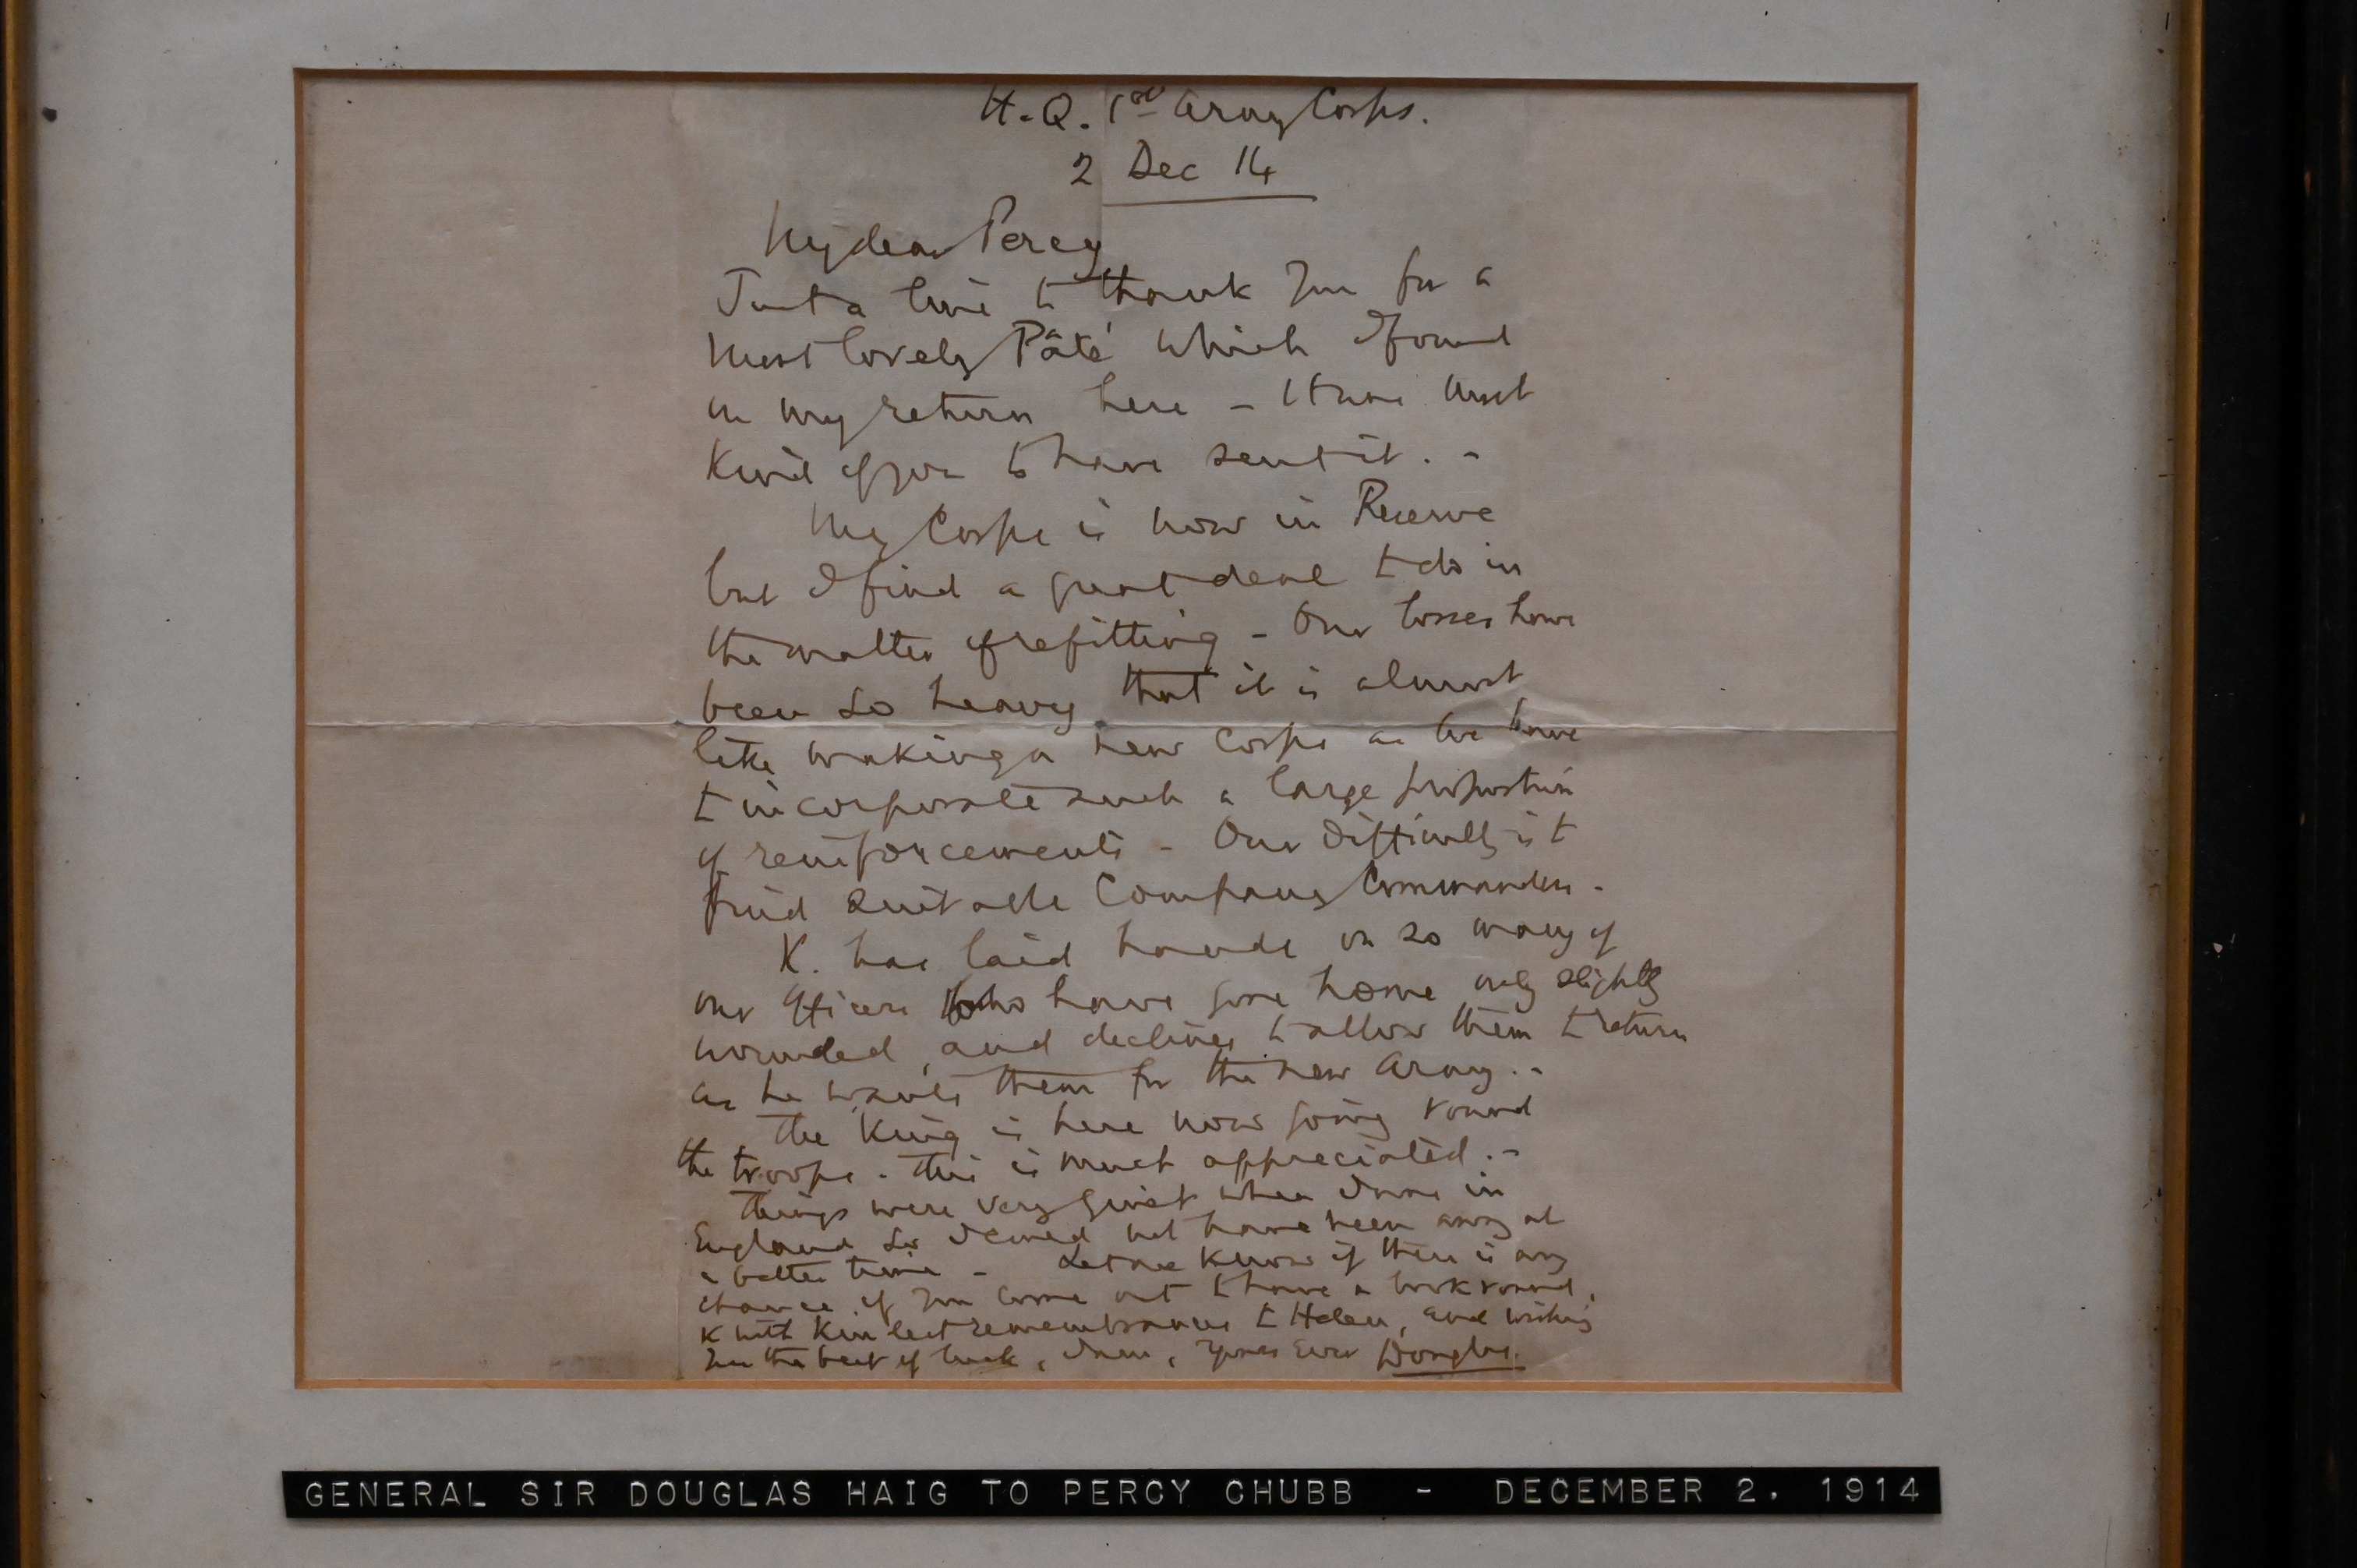 H.Q. 1st Army Corps.
2 Dec 14
My dear Percy
Just a line to thank you for a
most lovely Pâté which I found
on my return here - It was most
kind of you to have sent it. -
My Corps is now in Reserve
but I find a great deal to do in
the matter of refitting - Our losses have
been so heavy that it is almost
like making a new Corps as we have
to incorporate such a large proportion
of reinforcements - Our difficulty is to
find suitable Company Commanders -
K. has laid hands on so many of
our officers who have gone home only slightly
wounded, and declines to allow them to return
as he wants them for the new Army. -
The King is here now going round
the troops - This is much appreciated. -
Things were very quiet when I was in
England so I could not have been away at
a better time - Let me know if there is any
chance of you come out to have a look round,
& with kindest remembrances to Helen, and wishing
you the best of luck, I am, Yours Ever Douglas.
GENERAL SIR DOUGLAS HAIG TO PERCY CHUBB - DECEMBER 2. 1914